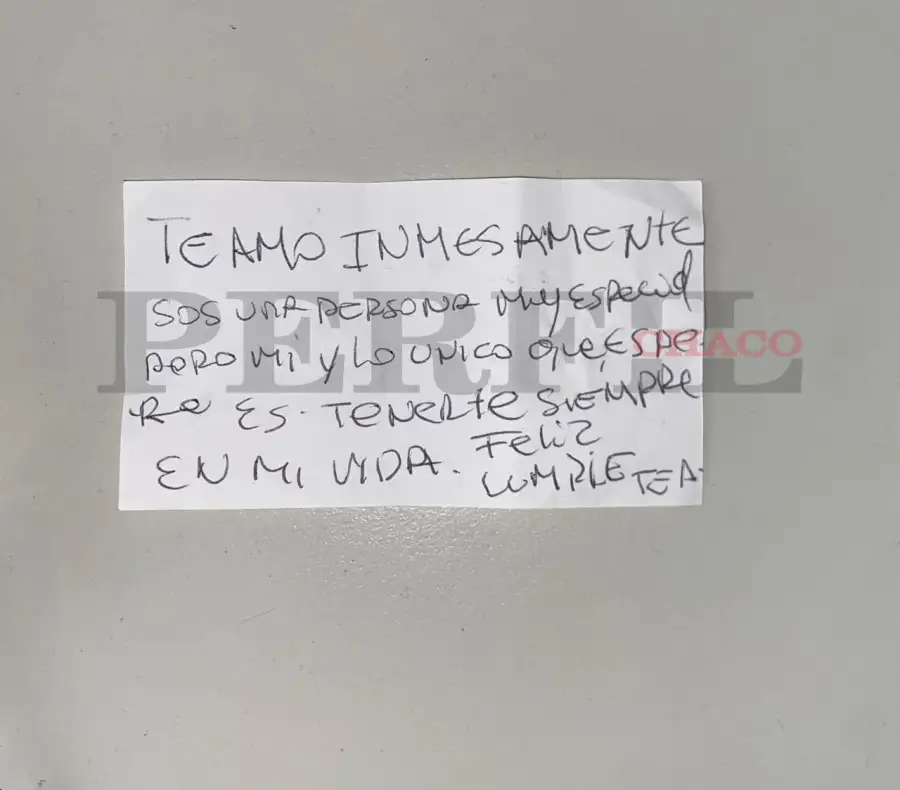 TE AMO INMESAMENTE
SOS UNA PERSONA MUY ESPECIAL
PARA MI Y LO UNICO QUE ESPE-
RE ES TENERTE SIEMPRE
EN MI VIDA. FELIZ
CUMPLE TEA.
PERFIL
CHACO